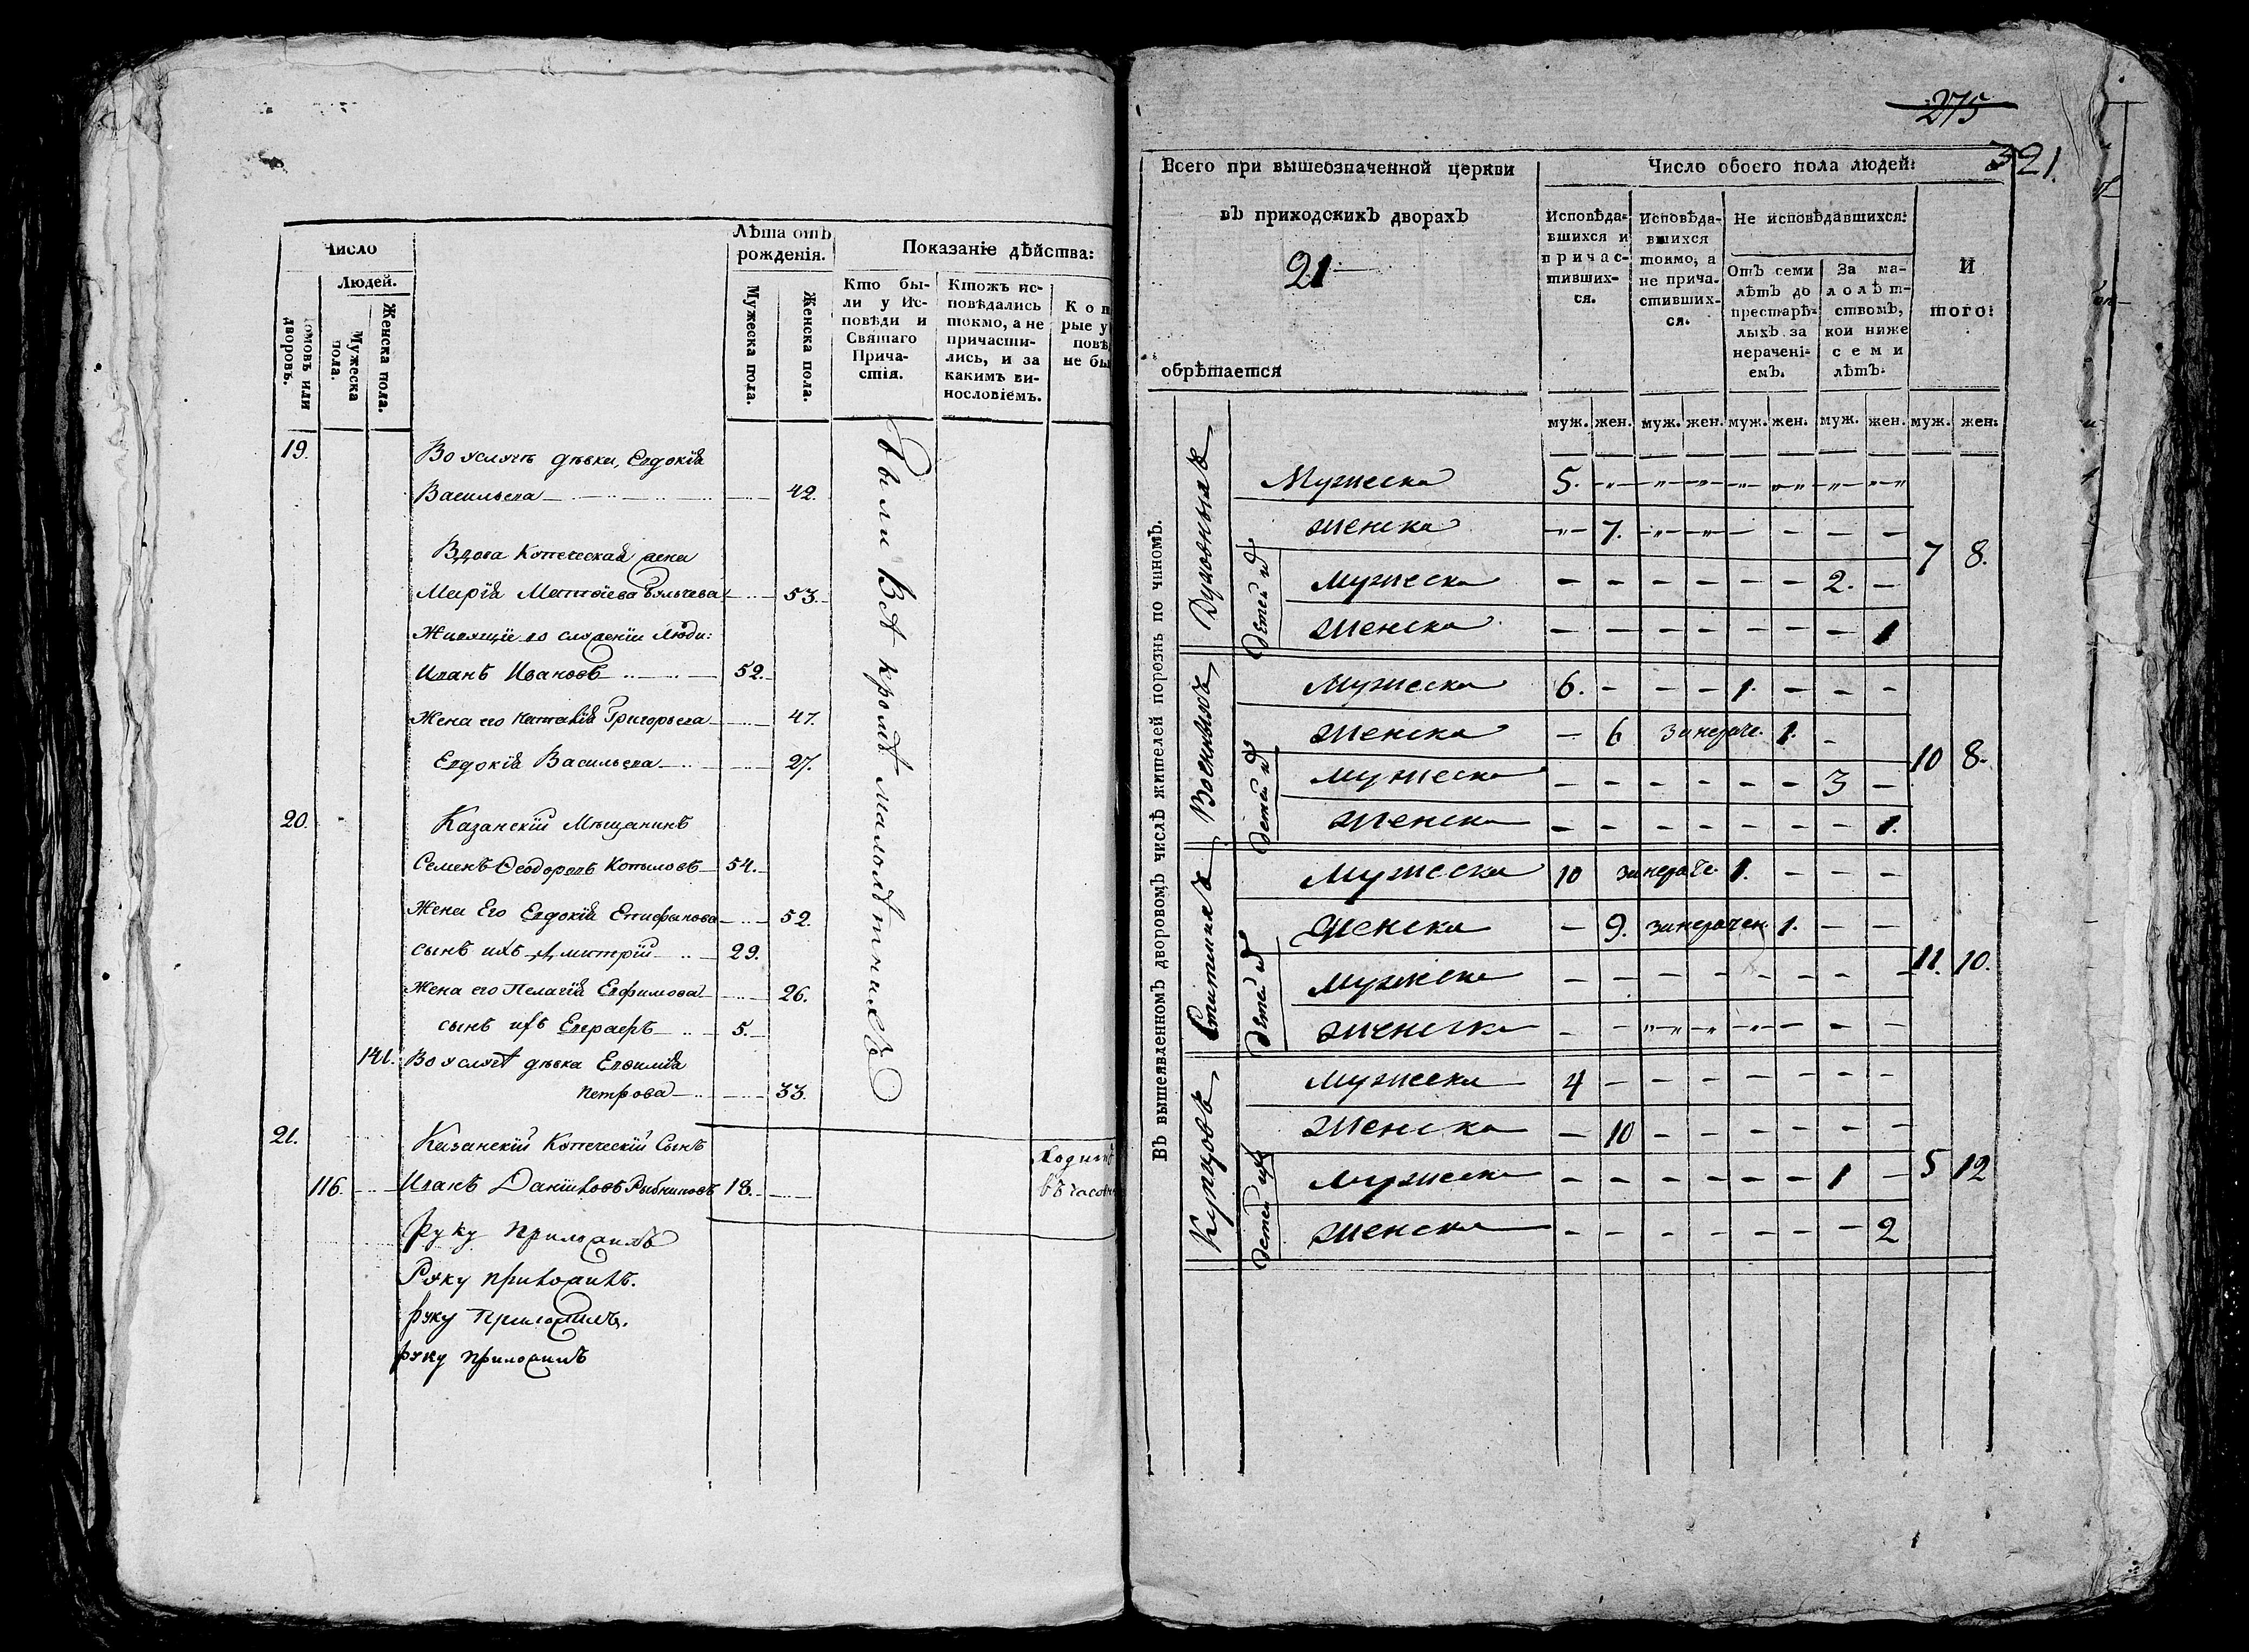 Число
Людей.
домовъ или дворовъ.
Мужеска пола.
Женска пола.
Лѣта отъ рожденія.
Мужеска пола.
Женска пола.
Показаніе дѣйства:
Кто бы-
ли у Ис-
повѣди и
Святаго
Прича-
стія.
Ктожъ ис-
повѣдались
токмо, а не
причасти-
лись, и за
какимъ ви-
нословіемъ.
Кот
рые у
повѣ
не бы
19. Во услугѣ дѣвки, Евдокія
Васильева 42.
Вдова Купеческая жена
Марія Матѳіева 53.
Живущіе во служеніи люди:
Иванъ Ивановъ 52.
Жена его Наталія Григорьева 47.
Евдокія Васильева 27.
20. Казанскій Мѣщанинъ
Семенъ Ѳеодоровъ Копыловъ 54.
Жена Его Евдокія Епифанова 52.
сынъ ихъ Димитрій 29.
Жена его Пелагія Ефимова 26.
сынъ ихъ Евграфъ 5.
141. Во услуг дѣвка Евфимія
Петрова 33.
21. Казанскій Купеческій Сынъ
116. Иванъ Даниловъ Рыбниковъ 18.
Ходитъ
въ часовн
Были Всѣ кромѣ малолѣтнихъ
руку приложилъ
Руку приложилъ.
руку Приложилъ.
руку приложилъ
275
321.
Всего при вышеозначенной церкви
въ приходскихъ дворахъ
21
обрѣтается
Число обоего пола людей:
Исповѣда-
вшихся и
причас-
тивших-
ся.
Исповѣда-
вшихся
токмо, а
не прича-
стивших-
ся.
Не исповѣдавшихся:
Отъ семи
лѣтъ до
престарѣ-
лыхъ за
нерачені-
емъ.
За ма-
лолѣт-
ствомъ,
кои ниже
семи
лѣтъ.
И
того:
муж. жен. муж. жен. муж. жен. муж. жен. муж. жен:
Въ вышеявленномъ дворовомъ числѣ жителей порознь по чиномъ.
Духовныхъ
Мужеска 5. - - - - - - -
Женска - 7. - - - - - -
7 8.
дѣтей ихъ
Мужеска - - - - - - 2. -
Женска - - - - - - - 1
Военныхъ
Мужеска 6. - - - 1. - - -
Женска - 6 за нераче. 1. -
10 8.
дѣтей ихъ
Мужеска - - - - - - 3 -
Женска - - - - - - - 1.
Статскихъ
Мужеска 10 за нераче. 1. - - -
Женска - 9. за нерачен. 1. - -
11. 10.
дѣтей ихъ
Мужеска - - - - - - - -
Женска - - - - - - - -
Купцовъ
Мужеска 4 - - - - - - -
Женска - 10 - - - - - -
5 12
дѣтей ихъ
Мужеска - - - - - - 1 -
Женска - - - - - - - 2